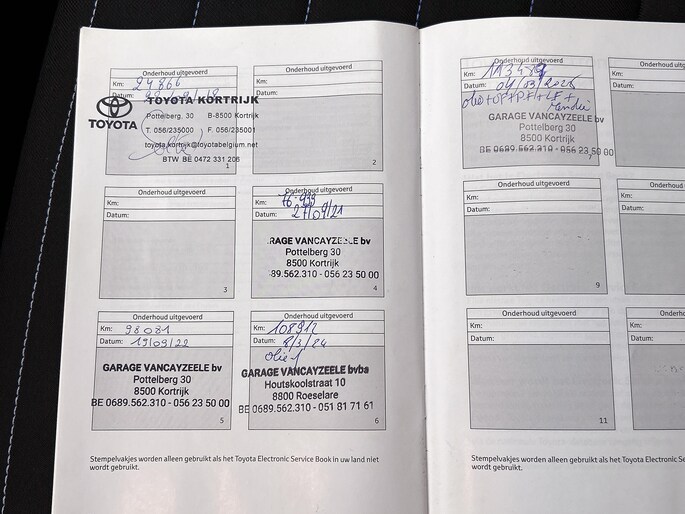 Onderhoud uitgevoerd
Km: 24866
Datum:
TOYOTA KORTRIJK
TOYOTA
Pottelberg, 30 B-8500 Kortrijk
T. 056/235000 F. 056/235001
toyota.kortrijk@toyotabelgium.net
BTW BE 0472 331 206
1
Onderhoud uitgevoerd
Km:
Datum:
2
Onderhoud uitgevoerd
Km:
Datum:
3
Onderhoud uitgevoerd
Km: 76.933
Datum: 27/09/21
RAGE VANCAYZEELE bv
Pottelberg 30
8500 Kortrijk
89.562.310 - 056 23 50 00
4
Onderhoud uitgevoerd
Km: 98081
Datum: 19/09/22
GARAGE VANCAYZEELE bv
Pottelberg 30
8500 Kortrijk
BE 0689.562.310 - 056 23 50 00
5
Onderhoud uitgevoerd
Km: 108912
Datum: 8/3/24
GARAGE VANCAYZEELE bvba
Houtskoolstraat 10
8800 Roeselare
BE 0689.562.310 - 051 81 71 61
6
Stempelvakjes worden alleen gebruikt als het Toyota Electronic Service Book in uw land niet
wordt gebruikt.
Onderhoud uitgevoerd
Km:
Datum: 04/03/2025
GARAGE VANCAYZEELE bv
Pottelberg 30
8500 Kortrijk
BE 0689.562.310 - 056 23 50 00
7
Onderhoud uitg
Km:
Datum:
Onderhoud uitgevoerd
Km:
Datum:
9
Km:
Datum:
Onderhoud uitgevoerd
Km:
Datum:
11
Onderho
Km:
Datum:
Stempelvakjes worden alleen gebruikt als het Toyota Electronic Se
wordt gebruikt.